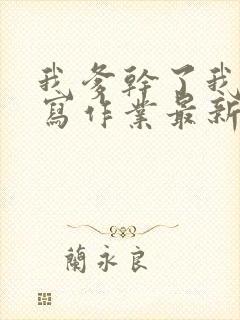 我爹幹了我
寫作業最新
蘭永良